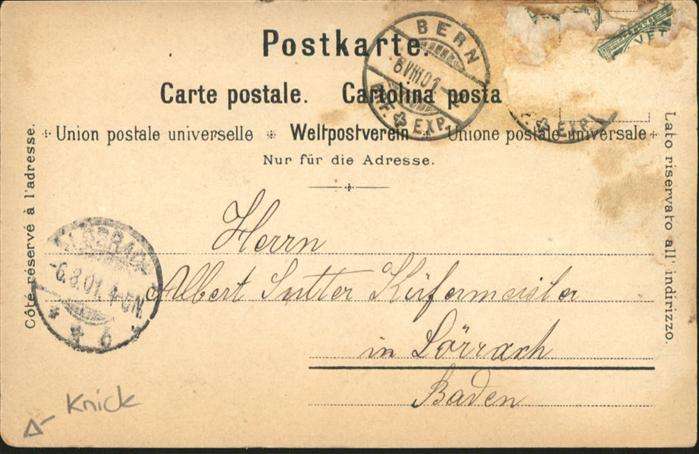 Postkarte.
Carte postale. Cartolina posta
Union postale universelle Weltpostverein Unione postale universale
Nur für die Adresse.
Côté réservé à l'adresse.
Lato riservato all' indirizzo.
BERN
6 VIII 01
EXP.
EXP.
6.8.01. 4-5N
6
Herrn
Albert Sutter Küfermeister
in Lörrach
Baden
Knick